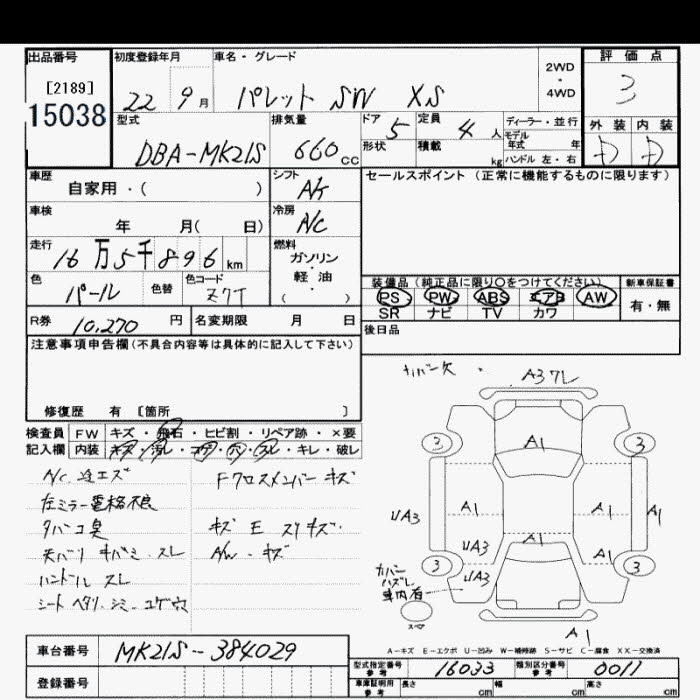 出品番号
[2189]
15038
初度登録年月
22 9月
車名・グレード
パレット SW XS
2WD
・
4WD
評価点
3
型式
DBA-MK21S
排気量
660 cc
ドア 5
定員 4 人
形状
積載 kg
ディーラー・並行
モデル年式 年
ハンドル 左・右
外装 内装
D D
車歴
自家用・( )
シフト
AT
車検
年 月( 日)
冷房
A/C
走行
16万5千896km
燃料
ガソリン
・
軽油
( )
色
パール
色替
色コード
Z7T
R券 10,270 円
名変期限 月 日
セールスポイント (正常に機能するものに限ります)
装備品 (純正品に限り○をつけてください)
PS PW ABS エアB AW
SR ナビ TV カワ
新車保証書
有・無
後日品
注意事項申告欄(不具合内容等は具体的に記入して下さい)
修復歴 有 [箇所 ]
検査員
記入欄
FW キズ・飛石・ヒビ割・リペア跡・×要
内装 キズ・汚レ・コゲ・穴・スレ・キレ・破レ
A/C 辺エズ
左ミラー電格不良
タバコ臭
天バリ キバミ スレ
ハンドル スレ
シート ヘタリ シミ コゲ穴
Fクロスメンバー キズ
キズ E スリキズ
A/W キズ
ナンバー欠
A3ワレ
3 3
A1
UA3 A1 A1
UA3 A1
A1
3 3
UA3
カバー
ハズレ
車内有
スペア
A1
A-キズ E-エクボ U-凹み W-補修跡 S-サビ C-腐食 XX-交換済
車台番号 MK21S-384029
登録番号
型式指定番号
参考
16033
類別区分番号
参考
0011
車庫証明用
参考
長さ cm 幅 cm 高さ cm